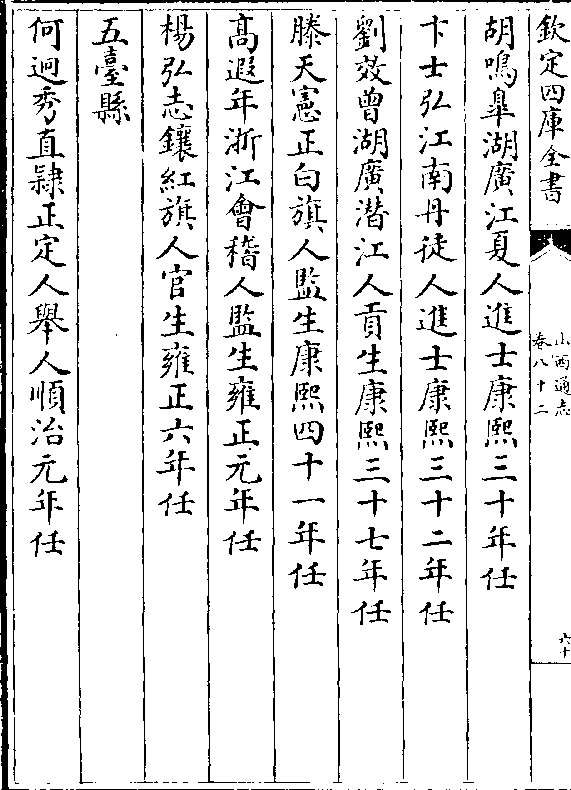 欽定四庫全書
山西通志
卷八十二
六十
胡鳴臯湖廣江夏人進士康熙三十年任
卞士弘江南丹徒人進士康熙三十二年任
劉效曾湖廣潛江人貢生康熙三十七年任
滕天憲正白旗人監生康熙四十一年任
高遐年浙江會稽人監生雍正元年任
楊弘志鑲紅旗人官生雍正六年任
五臺縣
何迥秀直隷正定人舉人順治元年任